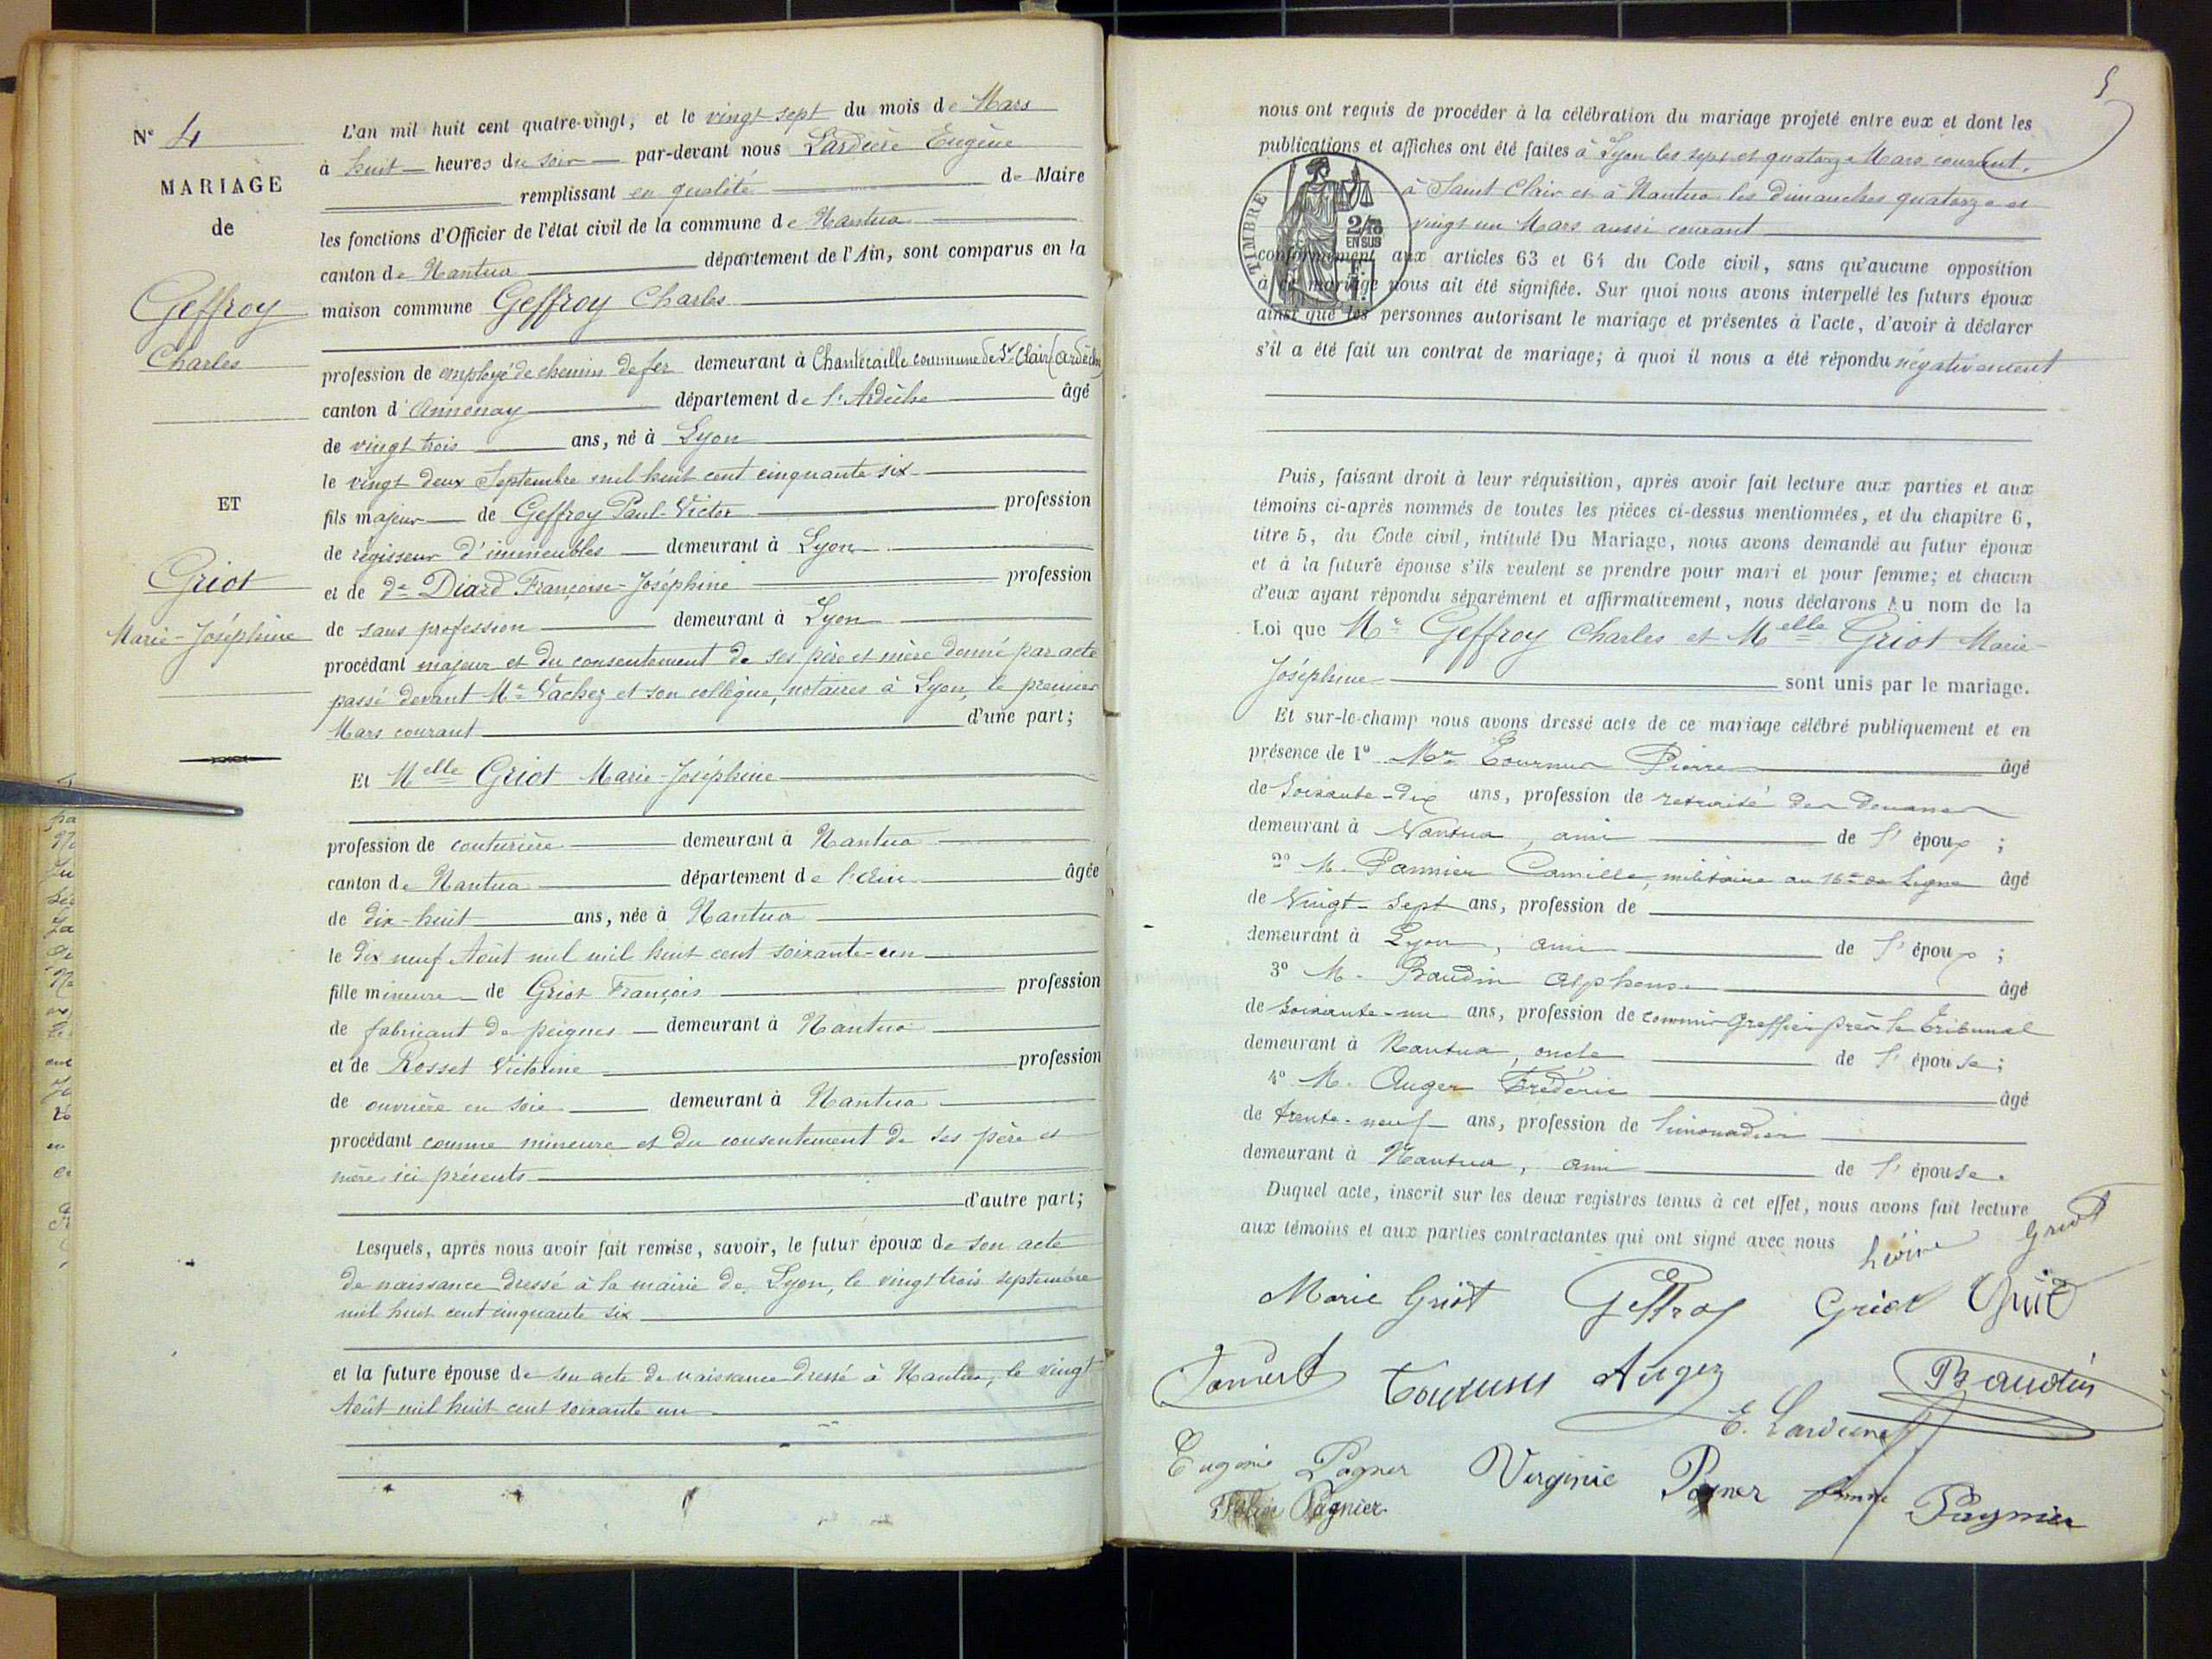 N° 4
MARIAGE
de
Geffroy
Charles
ET
Griot
Marie-Joséphine
L'an mil huit cent quatre-vingt, et le vingt sept du mois de Mars
à huit heures du soir par-devant nous Lardière Eugène
remplissant en qualité de Maire
les fonctions d'Officier de l'état civil de la commune de Nantua
canton de Nantua département de l'Ain, sont comparus en la
maison commune Geffroy Charles
profession de employé de chemin de fer demeurant à Chantecaille commune de St Clair (Ardèche)
canton d'Annonay département de l'Ardèche âgé
de vingt trois ans, né à Lyon
le vingt deux Septembre mil huit cent cinquante six
fils majeur de Geffroy Paul-Victor profession
de régisseur d'immeubles demeurant à Lyon
et de de Diard Françoise-Joséphine profession
de sans profession demeurant à Lyon
procédant majeur et du consentement de ses père et mère donné par acte
passé devant Me Vachez et son collègue, notaires à Lyon, le premier
Mars courant d'une part;
Et Melle Griot Marie-Joséphine
profession de couturière demeurant à Nantua
canton de Nantua département de l'Ain âgée
de dix-huit ans, née à Nantua
le dix neuf Août mil mil huit cent soixante-un
fille mineure de Griot François profession
de fabricant de peignes demeurant à Nantua
et de Rosset Victorine profession
de ouvrière en soie demeurant à Nantua
procédant comme mineure et du consentement de ses père et
mère ici présents
d'autre part;
Lesquels, après nous avoir fait remise, savoir, le futur époux de son acte
de naissance dressé à la mairie de Lyon, le vingt trois septembre
mil huit cent cinquante six
et la future épouse de son acte de naissance dressé à Nantua, le vingt
Août mil huit cent soixante un
5
nous ont requis de procéder à la célébration du mariage projeté entre eux et dont les
publications et affiches ont été faites à Lyon les sept et quatorze Mars courant,
à Saint Clair et à Nantua les dimanches quatorze et
vingt un Mars aussi courant
TIMBRE
2/10
EN SUS
conformément aux articles 63 et 64 du Code civil, sans qu'aucune opposition
à ce mariage nous ait été signifiée. Sur quoi nous avons interpellé les futurs époux
ainsi que les personnes autorisant le mariage et présentes à l'acte, d'avoir à déclarer
s'il a été fait un contrat de mariage; à quoi il nous a été répondu négativement
Puis, faisant droit à leur réquisition, après avoir fait lecture aux parties et aux
témoins ci-après nommés de toutes les pièces ci-dessus mentionnées, et du chapitre 6,
titre 5, du Code civil, intitulé Du Mariage, nous avons demandé au futur époux
et à la future épouse s'ils veulent se prendre pour mari et pour femme; et chacun
d'eux ayant répondu séparément et affirmativement, nous déclarons au nom de la
Loi que Mr Geffroy Charles et Melle Griot Marie-
Joséphine sont unis par le mariage.
Et sur-le-champ nous avons dressé acte de ce mariage célébré publiquement et en
présence de 1° Mr Tournus Pierre âgé
de soixante-dix ans, profession de retraité des douanes
demeurant à Nantua, ami de l'époux ;
2° M. Pannier Camille, militaire au 16me de Ligne âgé
de Vingt-sept ans, profession de
demeurant à Lyon, ami de l'époux ;
3° M. Baudin Alphonse âgé
de soixante-un ans, profession de commis Greffier près le tribunal
demeurant à Nantua, oncle de l'épouse ;
4° M. Auger Frédéric âgé
de trente-neuf ans, profession de limonadier
demeurant à Nantua, ami de l'épouse.
Duquel acte, inscrit sur les deux registres tenus à cet effet, nous avons fait lecture
aux témoins et aux parties contractantes qui ont signé avec nous
Griot
Marie Griot Geffroy Griot
Tournus Auger Baudin
E. Lardière
Eugénie Pagner Virginie Pagner femme Pagnier
Pagnier